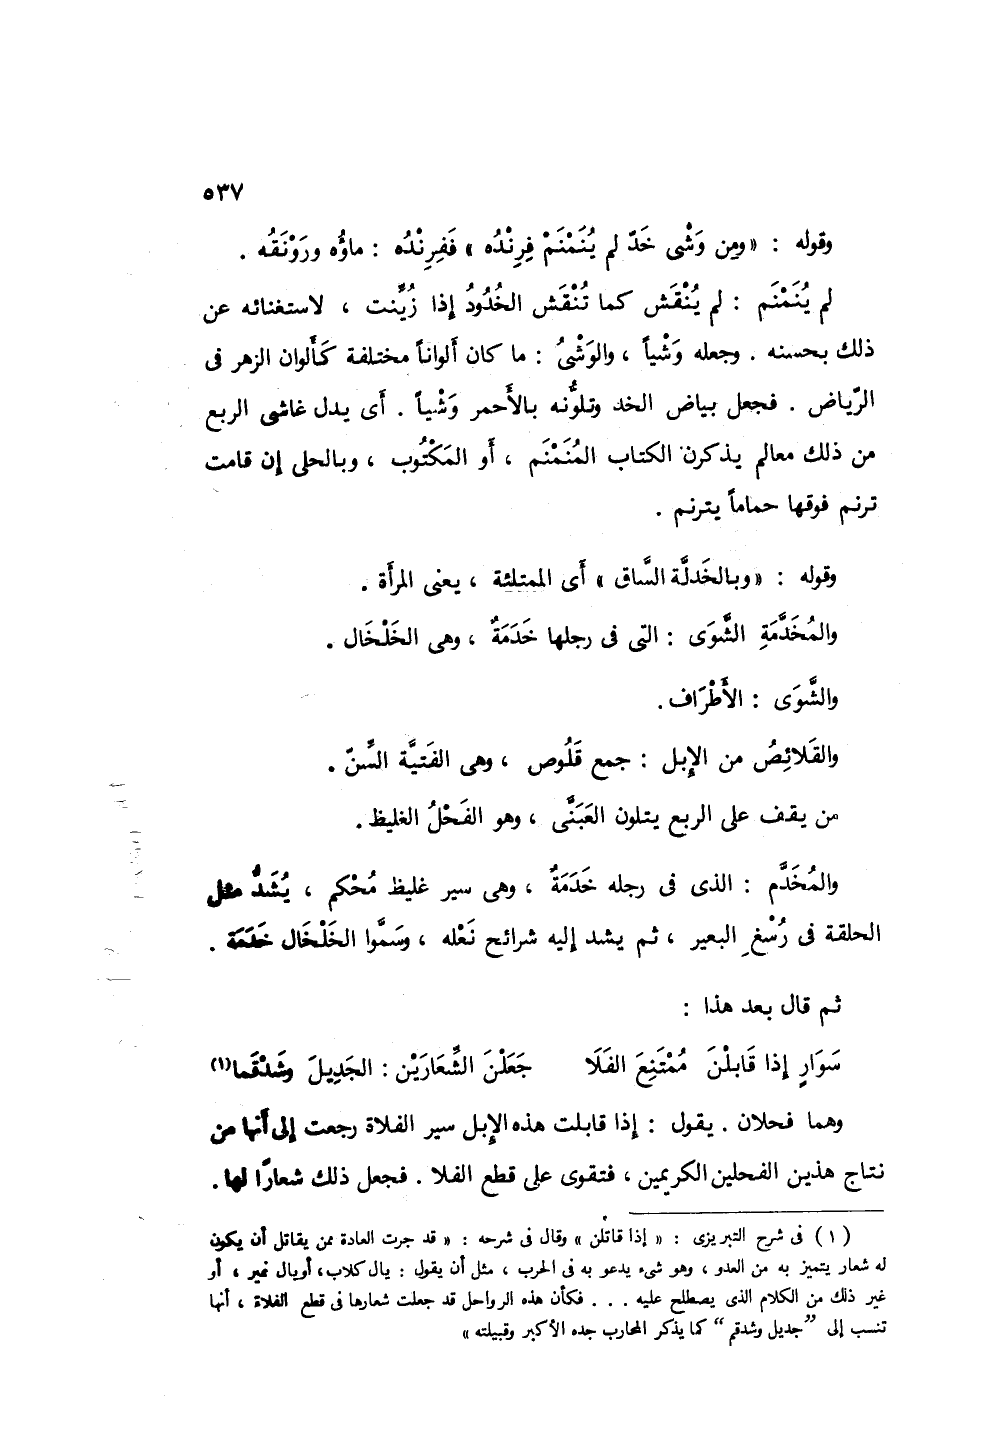 ٥٣٧
وقوله : « ومِن وَشْى خَدّ لم يُنَمْنَمْ فِرِنْدُه » فَفِرِنْدُه : ماؤُه ورَوْنَقُه .
لم يُنَمْنَم : لم يُنْقَش كما تُنْقَش الخُدُودُ إذا زُيِّنت ، لاستغنائه عن
ذلك بحسنه . وجعله وَشْياً ، والوَشْىُ : ما كان أَلواناً مختلفة كَأَلوان الزهر فى
الرّياض . فجعل بياض الخد وتلوُّنه بالأَحمر وَشْياً . أَى يدل غاشى الربع
من ذلك معالم يذكرن الكتاب المُنَمْنَم ، أَو المَكْتُوب ، وبالحلى إن قامت
ترنم فوقها حماماً يترنم .
وقوله : « وبالخَدلَّة السَّاق » أَى الممتلئة ، يعنى المرأَة .
والمُخَدَّمَةِ الشَّوَى : التى فى رجلها خَدَمَةٌ ، وهى الخَلْخَال .
والشَّوَى : الأَطْرَاف .
والقَلائِصُ من الإِبل : جمع قَلُوص ، وهى الفَتيَّة السِّنّ .
من يقف على الربع يتلون العَبَنَّى ، وهو الفَحْلُ الغليظ .
والمُخَدَّم : الذى فى رجله خَدَمَةٌ ، وهى سير غليظ مُحْكم ، يُشَدُّ مثل
الحلقة فى رُسْغِ البعير ، ثم يشد إليه شرائح نَعْله ، وسَمَّوا الخَلْخَال خَدَمَة .
ثم قال بعد هذا :
سَوَارٍ إذا قَابلْنَ مُمْتَنِعَ الفَلَا جَعَلْنَ الشِّعَارَيْن : الجَدِيلَ وشَدْقَما(١)
وهما فحلان . يقول : إذا قابلت هذه الإبل سير الفلاة رجعت إلى أَنها من
نتاج هذين الفحلين الكريمين ، فتقوى على قطع الفلا . فجعل ذلك شعارًا لها .
(١) فى شرح التبريزى : « إذا قاتلن » وقال فى شرحه : « قد جرت العادة ممن يقاتل أن يكون
له شعار يتميز به من العدو ، وهو شىء يدعو به فى الحرب ، مثل أن يقول : يال كلاب، أو يال نمير ، أو
غير ذلك من الكلام الذى يصطلح عليه . . . فكأن هذه الرواحل قد جعلت شعارها فى قطع الفلاة ، أنها
تنسب إلى ”جديل وشدقم“ كما يذكر المحارب جده الأكبر وقبيلته »